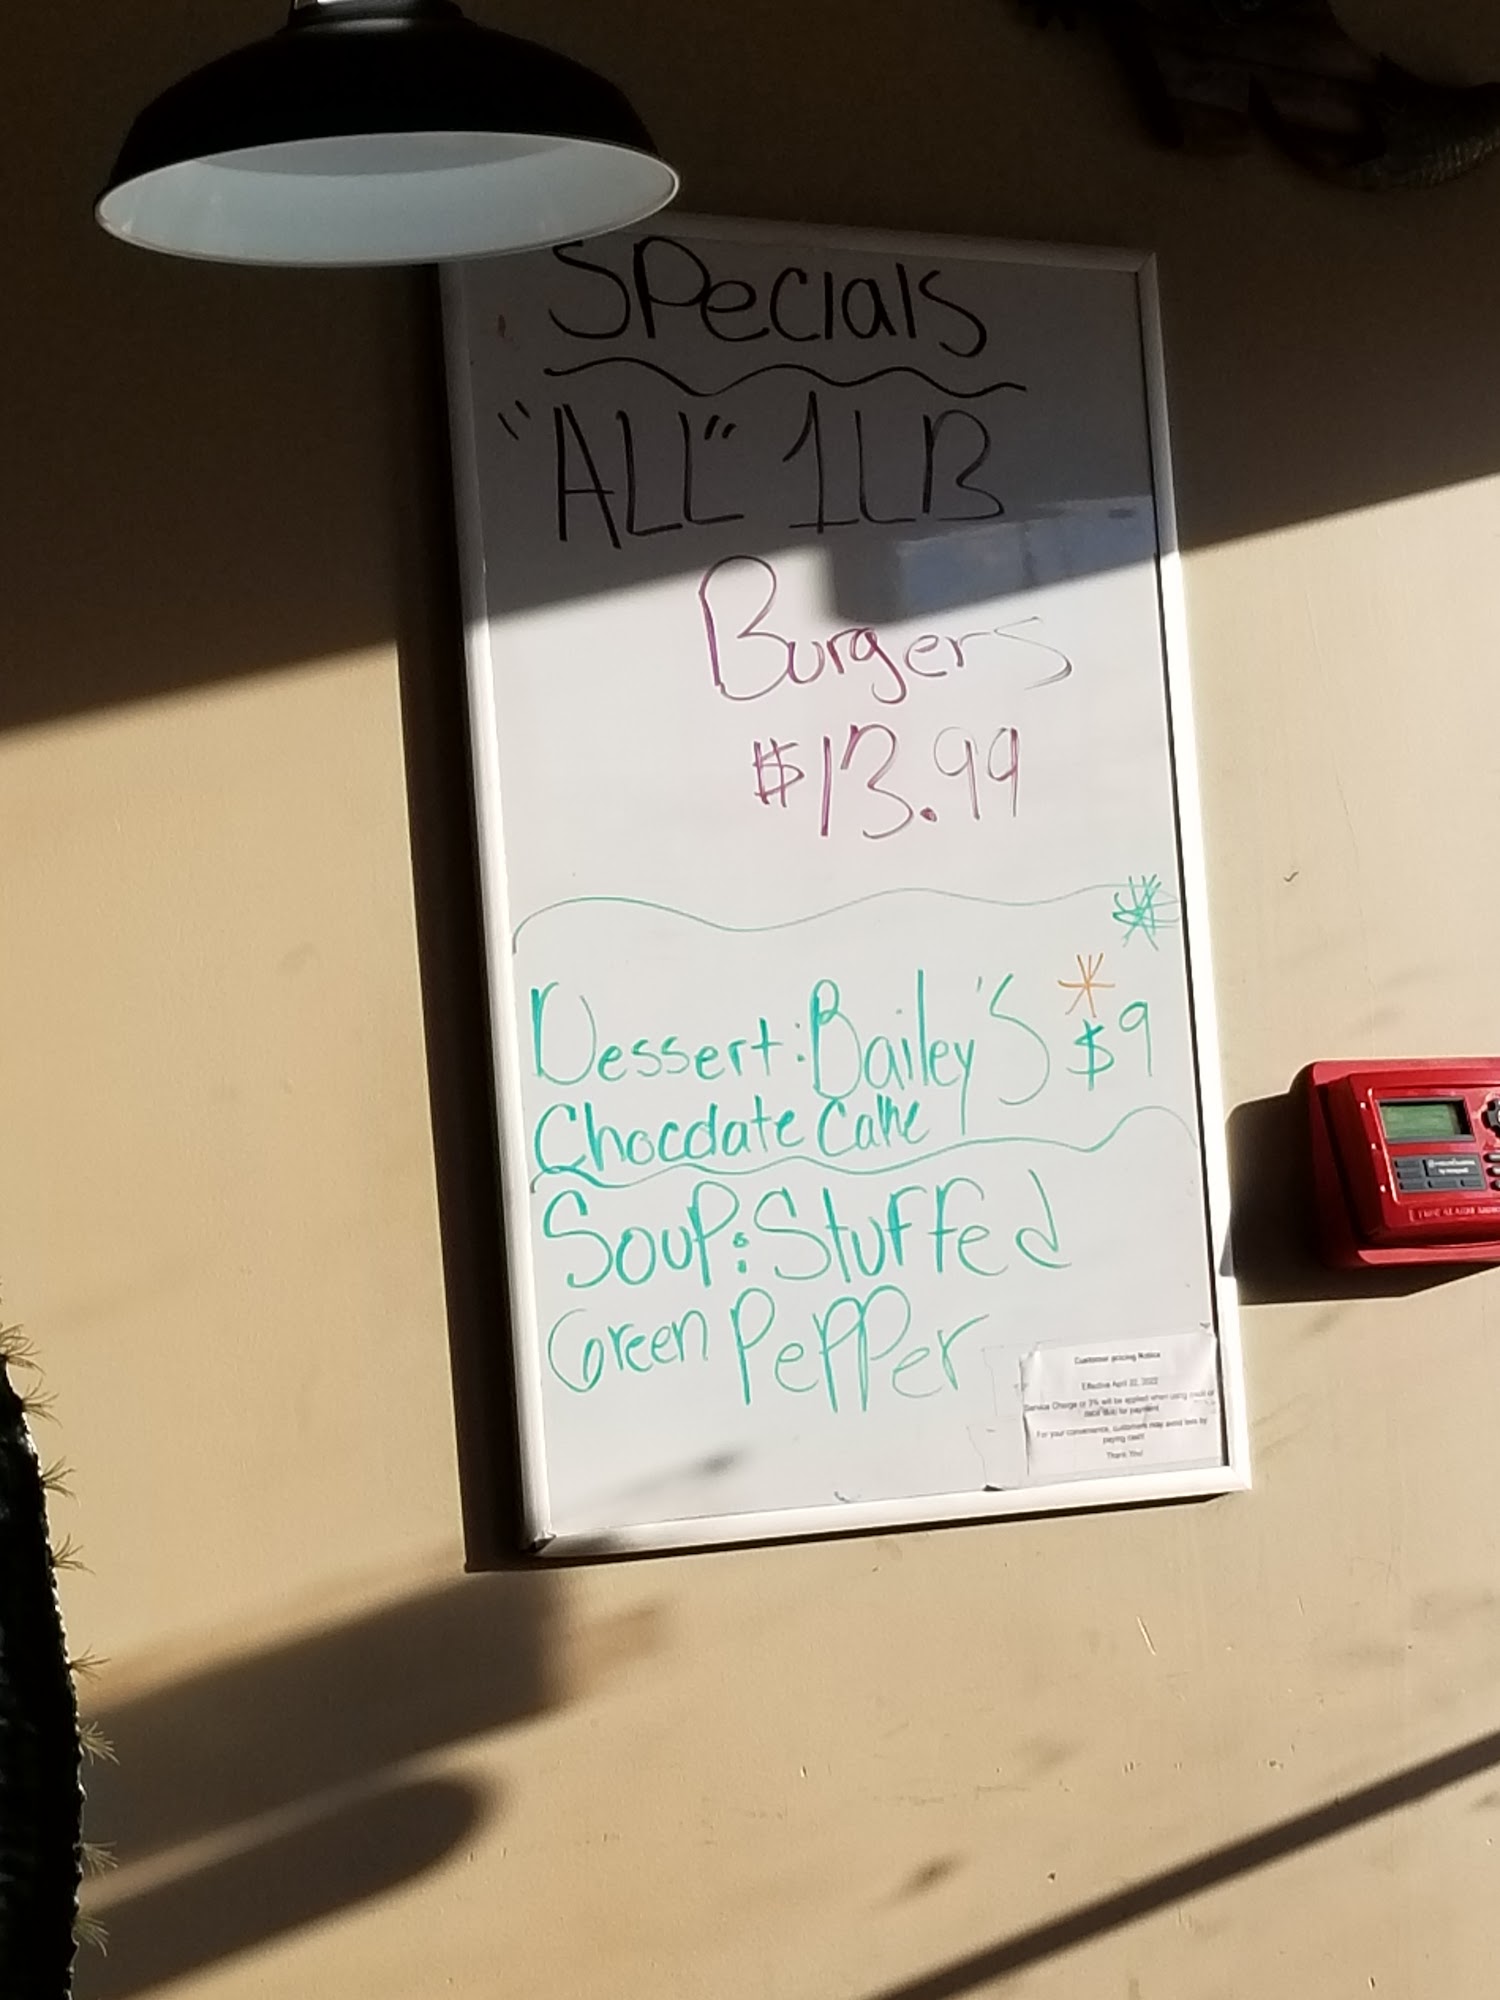 Specials
"ALL" 1LB
Burgers
$13.99
Dessert: Bailey's $9
Chocolate Cake
Soup: Stuffed
Green Pepper
Customer pricing Notice
Effective April 22, 2022
Service Charge or 3% will be applied when using credit or
debit for payment
For your convenience, customers may avoid fees by
paying cash!
Thank You!